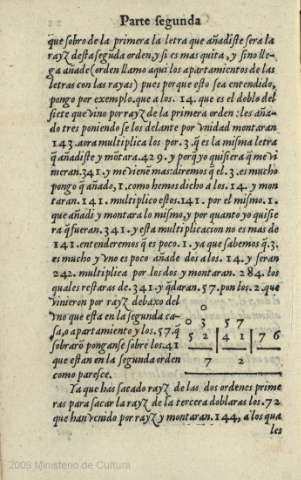 Parte segunda
que sobro de la primera la letra que añadiste sera la
rayz desta segũda orden, y si es mas quita, y sino lle-
ga añade (orden llamo aqui los apartamientos de las
letras con las rayas) pues por que esto sea entendido,
pongo por exemplo. que a los. 14. que es el doblo del
siete que vino por rayz de la primera orden: les aña-
do tres poniendo se los delante por vnidad montaran
143. aora multiplica los por. 3. q̃ es la misma letra
q̃ añadiste y mõtara. 429. y porq̃ yo quisiera q̃ me vi
nieran. 341. y me viene mas: diremos q̃ el. 3. es mucho
pongo q̃ añado, 1. como hemos dicho a los. 14. y mon
taran. 141. multiplico estos. 141. por el mismo. 1.
que añadi y montara lo mismo, y por quanto yo quisie
ra q̃ fueran. 341. y esta multiplicacion no es mas de
141. entenderemos q̃ es poco. 1. ya que sabemos q̃. 3.
es mucho y vno es poco añade dos a los. 14. y seran
242. multiplica por los dos y montaran. 284. los
quales restaras de. 341. y q̃daran. 57. pon los. 2. que
vinieron por rayz debaxo del
vno que esta en la segunda ca-
sa, o apartamiento y los. 57. q̃
sobrarõ ponganse sobre los. 41
que estan en la segunda orden
como paresce.
0
0 3 57
5 2 | 4 1 | 7 6
7 2
Ya que has sacado rayz de las dos ordenes prime
ras para sacar la rayz de la tercera doblaras los. 72
que han venido por rayz y montaran. 144, a los qua
les
2009 Ministerio de Cultura